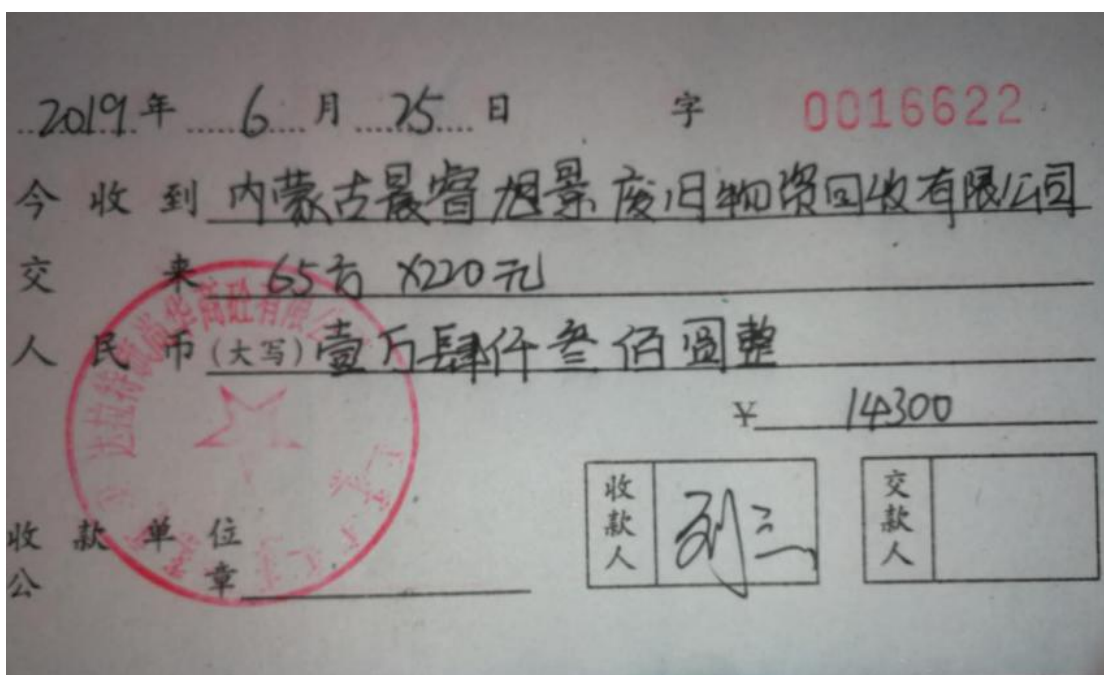 2019年 6 月 25 日 字 0016622
今收到 内蒙古晨睿旭景废旧物资回收有限公司
交来 65方 X220元
人民币(大写)壹万肆仟叁佰圆整
¥ 14300
收款单位
公章
收款人 刘三
交款人
商砼有限